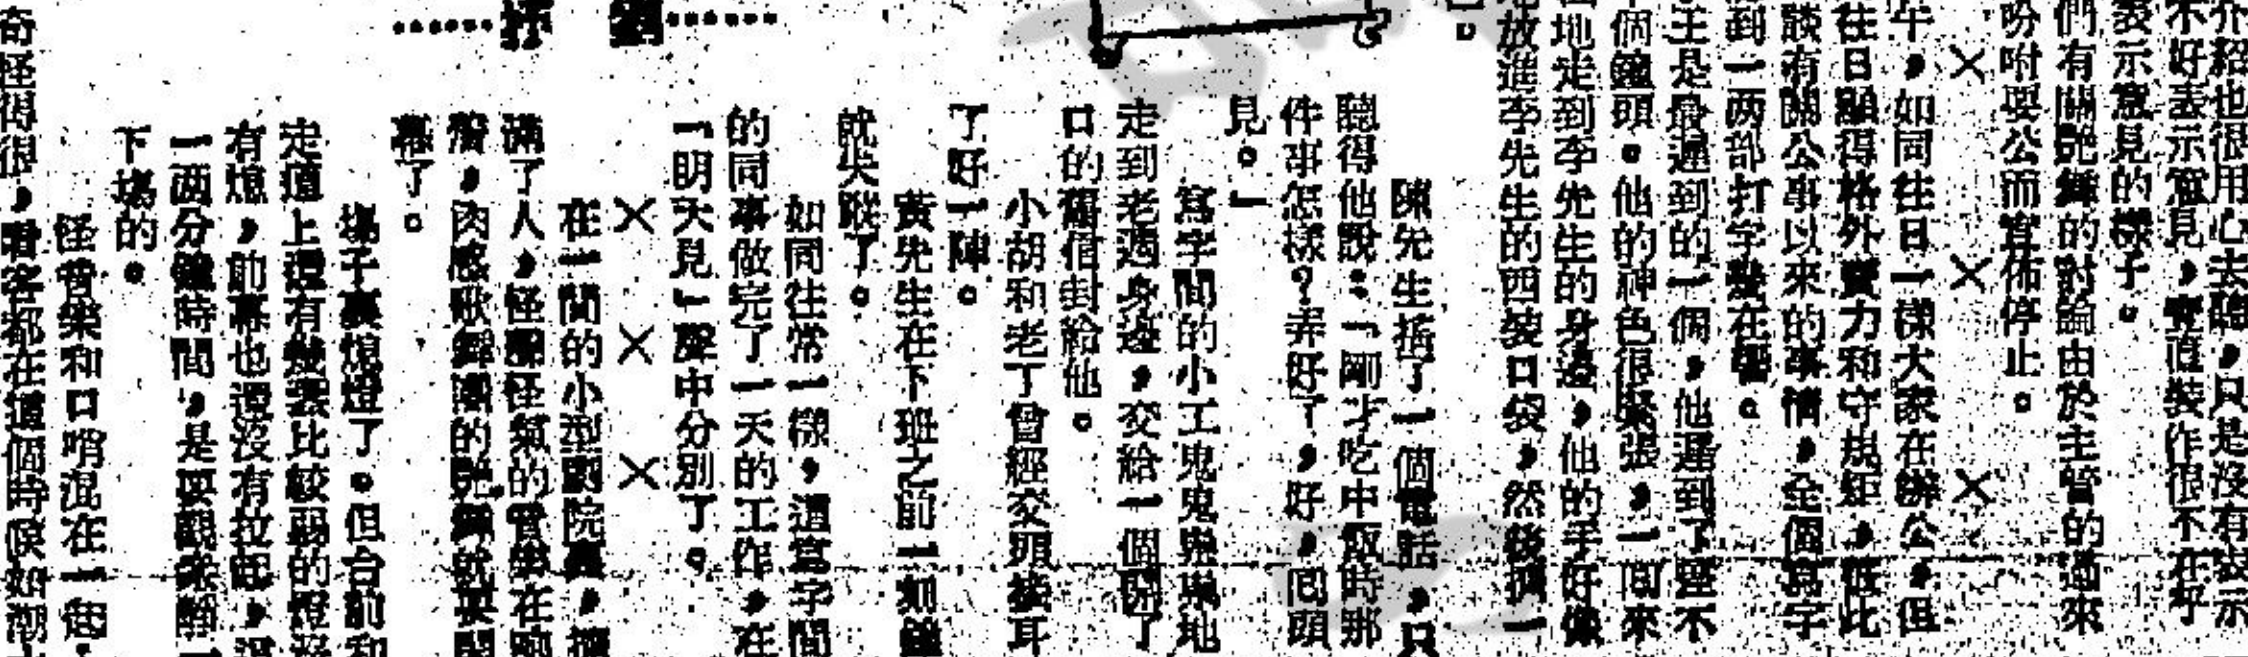 介紹也很用心去聽，只是沒有表示
不好表示意見，簡直裝作很不在乎
表示意見的樣子。
們有關艷舞的討論由於主管的過來
吩咐要公而宣佈停止。
×　×　×
午，如同往日一樣大家在辦公，但
往日顯得格外賣力和守規矩，在比
談有關公事以來的事情，全個寫字
到一两部打字機在響。
主是最遲到的一個，他遲到了差不
個鐘頭。他的神色很緊張，一回來
地走到李先生的身邊，他的手好像
放進李先生的西裝口袋，然後一
陳先生搖了一個電話，只
聽得他說：「剛才吃中飯時那
件事怎樣？弄好了，好，回頭
見。」
寫字間的小工鬼鬼祟祟地
走到老周身邊，交給一個開了
口的舊信封給他。
小胡和老丁曾經交頭接耳
了好一陣。
黃先生在下班之前一刻鐘
就失蹤了。
如同往常一樣，這寫字間
的同事做完了一天的工作，在
「明天見」聲中分別了。
×　×　×
在一間的小型劇院裏，擠
滿了人，怪聲怪氣的音樂在
，肉感歌舞團的艷舞就要開
幕了。
場子裏熄燈了。但台前和
走道上還有幾盞比較弱的燈沒
有熄，帥幕也還沒有拉起，
一两分鐘時間，是要觀衆靜一
下場的。
怪音樂和口哨混在一起，
奇怪得很，看客都在這個時候如潮